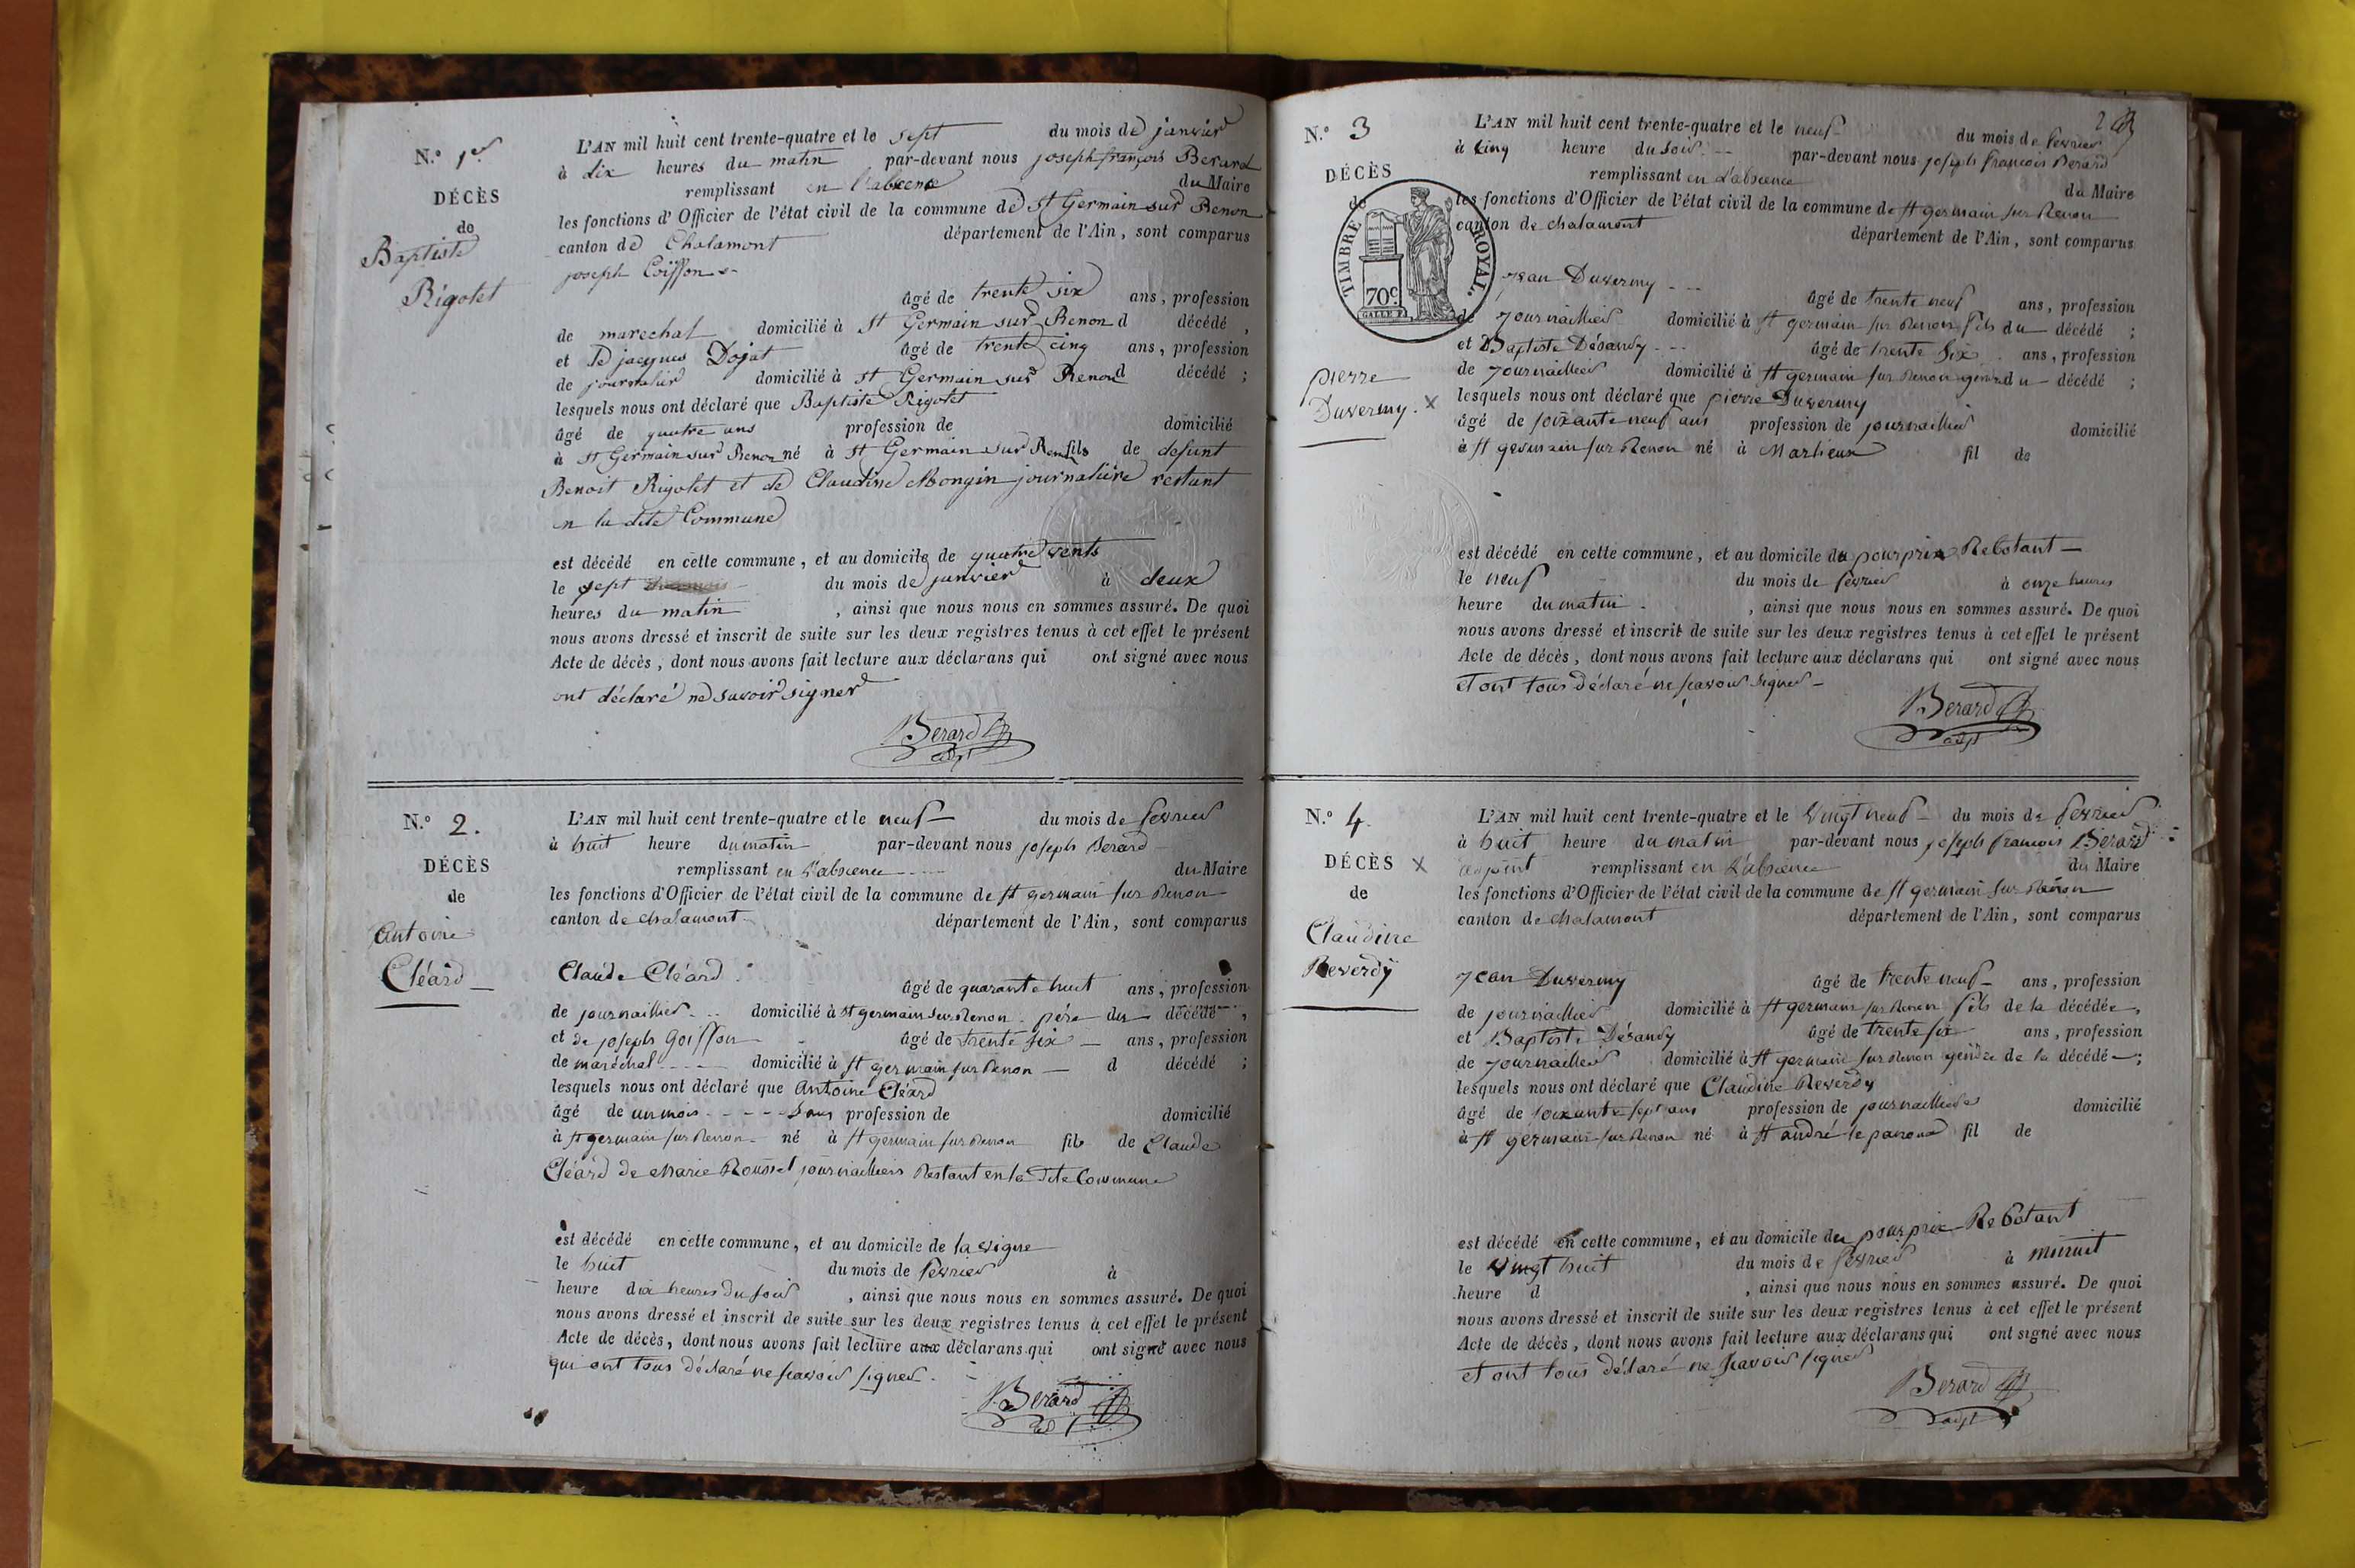 N.º 1er
DÉCÈS
de
Baptiste
Rigolet
L'AN mil huit cent trente-quatre et le sept du mois de janvier
à dix heures du matin par-devant nous joseph françois Berard
remplissant en l'absence du Maire
les fonctions d'Officier de l'état civil de la commune de St Germain sur Renon
canton de Chalamont département de l'Ain, sont comparus
joseph Coiffon
âgé de trente six ans, profession
de marechal domicilié à St Germain sur Renon d décédé,
et de jacques Dojat âgé de trente cinq ans, profession
de journalier domicilié à St Germain sur Renon d décédé ;
lesquels nous ont déclaré que Baptiste Rigolet
âgé de quatre ans profession de domicilié
à St Germain sur Renon né à St Germain sur Renon fils de defunt
Benoit Rigolet et de Claudine Mongin journalière restant
en la dite Commune
est décédé en cette commune, et au domicile de quatre vents
le sept du mois de janvier à deux
heures du matin, ainsi que nous nous en sommes assuré. De quoi
nous avons dressé et inscrit de suite sur les deux registres tenus à cet effet le présent
Acte de décès, dont nous avons fait lecture aux déclarans qui ont signé avec nous
ont déclaré ne savoir signer
Berard
adjt
N.º 2.
DÉCÈS
de
Antoine
Cléard
L'AN mil huit cent trente-quatre et le neuf du mois de fevrier
à huit heure du matin par-devant nous joseph Berard
remplissant en l'absence du Maire
les fonctions d'Officier de l'état civil de la commune de st germain sur Renon
canton de chalamont département de l'Ain, sont comparus
Claude Cléard
âgé de quarante huit ans, profession
de journaillier domicilié à st germain sur Renon père du décédé,
et de joseph Goiffon âgé de trente six ans, profession
de maréchal domicilié à st germain sur Renon d décédé ;
lesquels nous ont déclaré que Antoine Cléard
âgé de un mois sans profession de domicilié
à st germain sur Renon né à st germain sur Renon fils de Claude
Cléard de Marie Roussel journailliers Restant en la dite Commune
est décédé en cette commune, et au domicile de la vigne
le huit du mois de fevrier à
heure dix heures du soir, ainsi que nous nous en sommes assuré. De quoi
nous avons dressé et inscrit de suite sur les deux registres tenus à cet effet le présent
Acte de décès, dont nous avons fait lecture aux déclarans qui ont signé avec nous
qui ont tous déclaré ne scavoir signer.
Berard
adjt
2
N.º 3
DÉCÈS
de
TIMBRE ROYAL.
70c
pierre
Duverny. x
L'AN mil huit cent trente-quatre et le neuf du mois de fevrier
à cinq heure du soir par-devant nous joseph francois Berard
remplissant en l'absence du Maire
les fonctions d'Officier de l'état civil de la commune de st germain sur Renon
canton de chalamont département de l'Ain, sont comparus
jean Duverny
âgé de trente neuf ans, profession
de journaillier domicilié à st germain sur Renon fils du décédé ;
et Baptiste Désandy âgé de trente six ans, profession
de journaillier domicilié à st germain sur Renon gendre du décédé ;
lesquels nous ont déclaré que pierre Duverny
âgé de soixante neuf ans profession de journaillier domicilié
à st germain sur Renon né à Marlieux fil de
est décédé en cette commune, et au domicile du pourprix Rebotant
le neuf du mois de fevrier à onze heures
heure du matin, ainsi que nous nous en sommes assuré. De quoi
nous avons dressé et inscrit de suite sur les deux registres tenus à cet effet le présent
Acte de décès, dont nous avons fait lecture aux déclarans qui ont signé avec nous
et ont tous déclaré ne scavoir signer
Berard
adjt
N.º 4.
DÉCÈS x
de
Claudine
Reverdy
L'AN mil huit cent trente-quatre et le vingt neuf du mois de fevrier
à huit heure du matin par-devant nous joseph francois Berard
adjoint remplissant en l'absence du Maire
les fonctions d'Officier de l'état civil de la commune de st germain sur Renon
canton de chalamont département de l'Ain, sont comparus
jean Duverny âgé de trente neuf ans, profession
de journaillier domicilié à st germain sur Renon fils de la décédée,
et Baptiste Désandy âgé de trente six ans, profession
de journaillier domicilié à st germain sur Renon gendre de la décédé ;
lesquels nous ont déclaré que Claudine Reverdy
âgé de soixante sept ans profession de journaillière domicilié
à st germain sur Renon né à st andré le panoux fil de
est décédé en cette commune, et au domicile du pourprix Rebotant
le vingt huit du mois de fevrier à minuit
heure d, ainsi que nous nous en sommes assuré. De quoi
nous avons dressé et inscrit de suite sur les deux registres tenus à cet effet le présent
Acte de décès, dont nous avons fait lecture aux déclarans qui ont signé avec nous
et ont tous déclaré ne scavoir signer
Berard
adjt